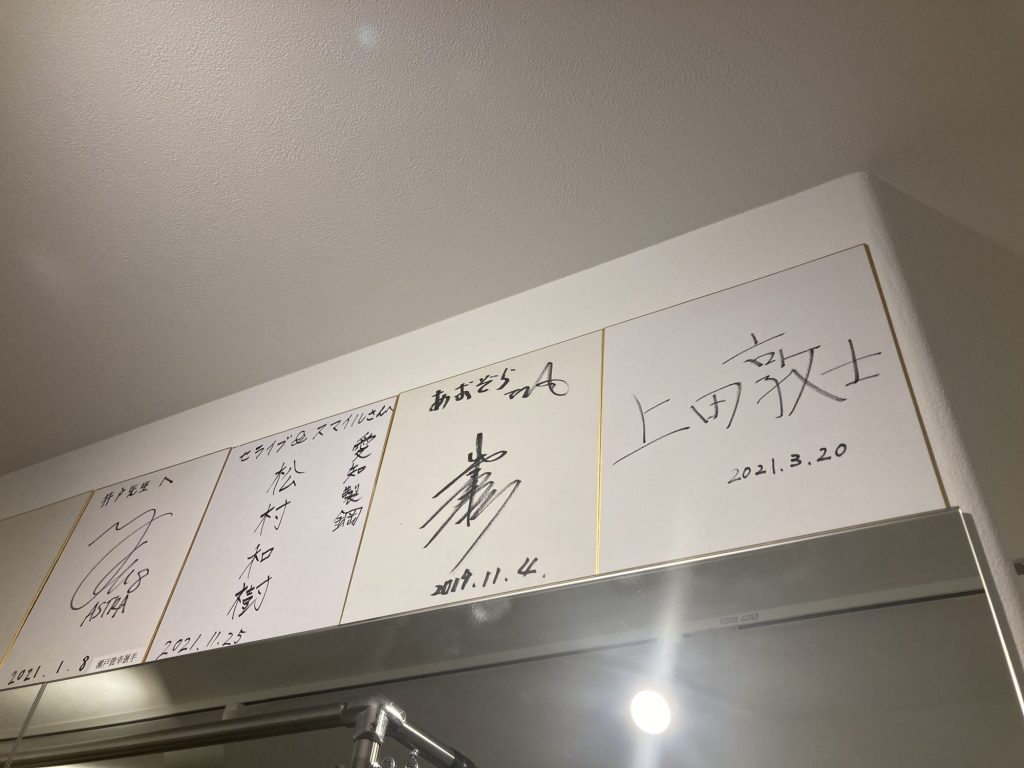 井戸先生へ
ASTRA
2021.1.8
瀬戸貴幸選手
セライブ&スマイルさんへ
愛知製鋼
松村和樹
2021.11.25
あおぞら
2019.11.4.
上田敦士
2021.3.20